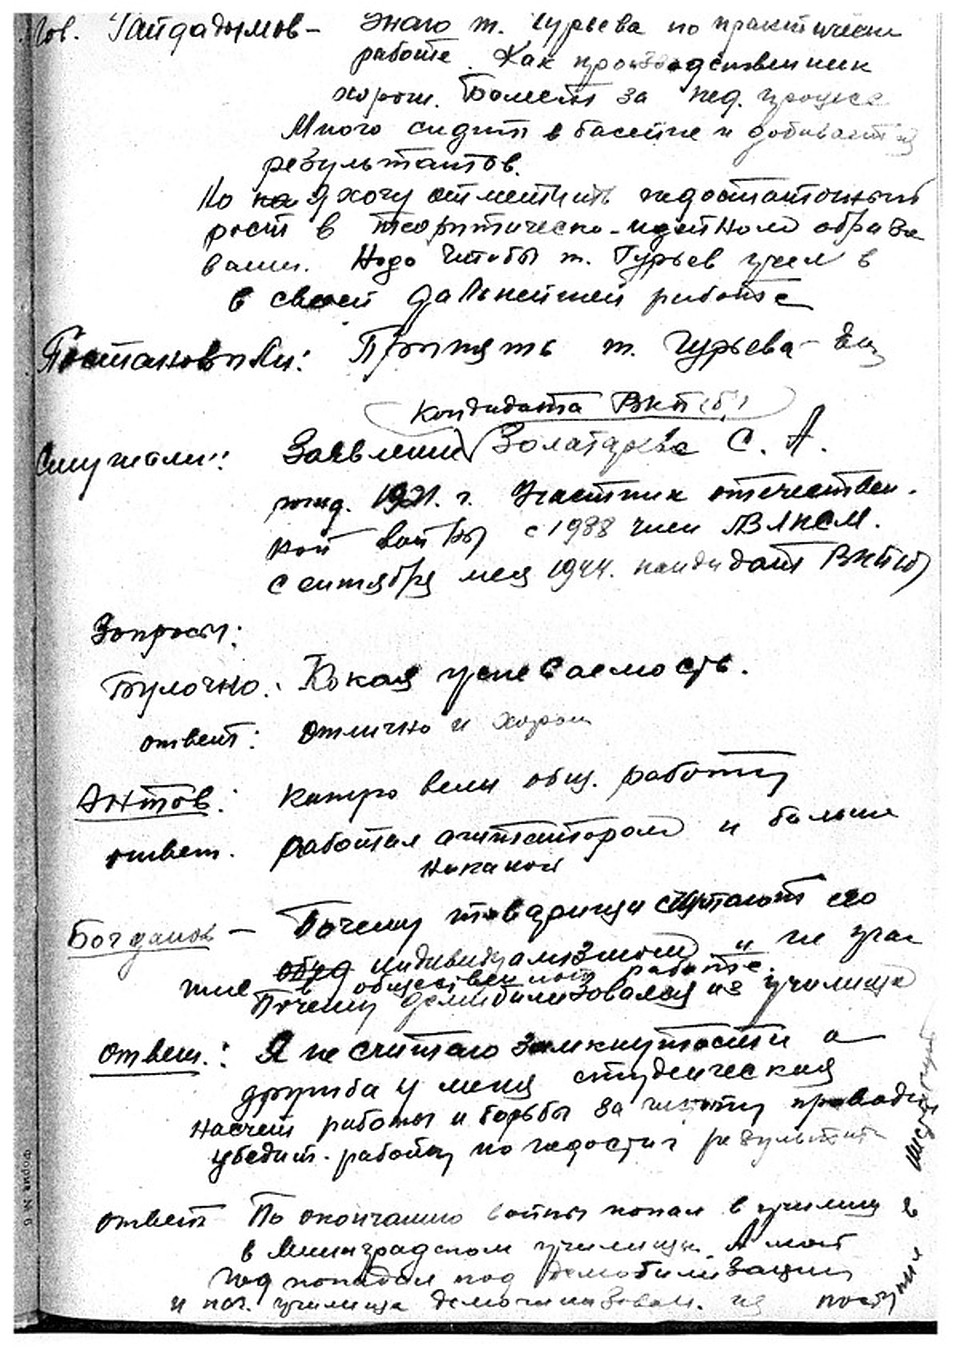 Тов. Гайдадымов – Знаю т. Гурьева по практически
работе. Как производственник
хорош. Болеет за пед. процесс
Много сидит в басейне и добивается
результатов.
Но на я хочу отметить недостаточный
рост в теоритическо-идейном образо
вании. Надо чтобы т. Гурьев учел в
в своей дальнейшей работе
Постановили: Принять т. Гурьева
кандидата ВКП(б)
Слушали: Заявление Золатарева С. А.
рожд. 1921 г. Участник отечествен.
ной войны с 1938 член ВЛКСМ.
с сентября мея 1944. кандидат ВКП(б)
Вопросы:
Булочко: Какая успеваемость.
ответ: отлично и хорош
Антов: какую вели общ. работу
ответ. работал агитатором и больше
никакой
Богданов – Почему товарищи считают его
общ индивидуализмом и не учас
тие в общественной работе.
Почему демобилизовался из училища
ответ: Я не считаю замкнутости а
дружба у меня студенческая
насчет работы и борьбы за чистоту проводил
убедит. работу но недостиг результата
ответ По окончанию войны попал в училищ
в Ленинградском училищы. А мой
год попадал под демобилизации
и нач. училища демобилизовал. из
поступил в институт
Форма № 6